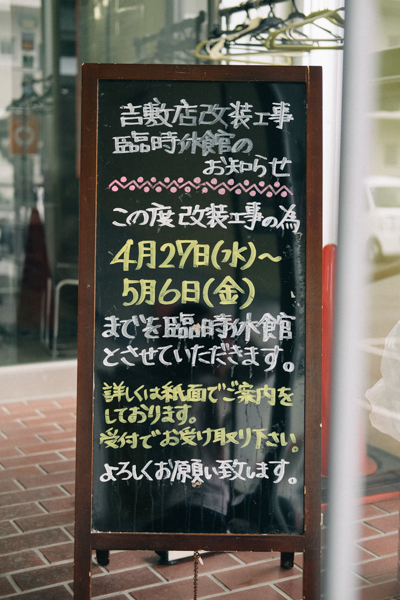 吉敷店改装工事
臨時休館の
お知らせ
この度改装工事の為
4月27日(水)〜
5月6日(金)
までを臨時休館
とさせていただきます。
詳しくは紙面でご案内を
しております。
受付でお受け取り下さい。
よろしくお願い致します。